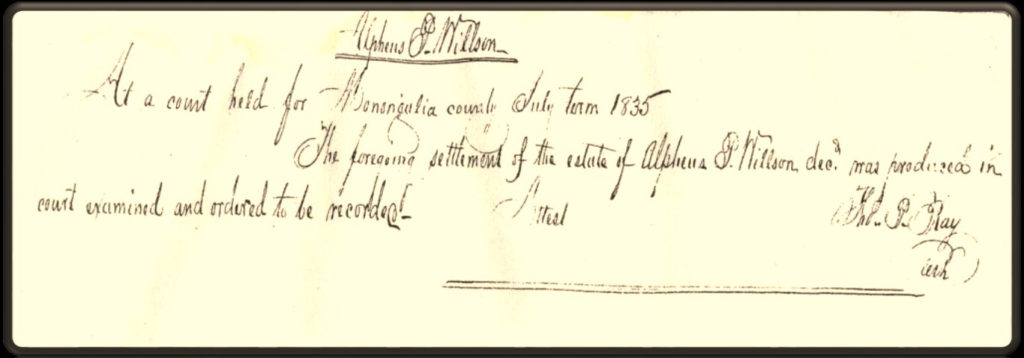 Alpheus P. Willson
At a court held for Monongalia county July term 1835
The foregoing settlement of the estate of Alpheus P. Willson decd. was produced in
court examined and ordered to be recorded
Attest Thos. P. Ray
Clerk